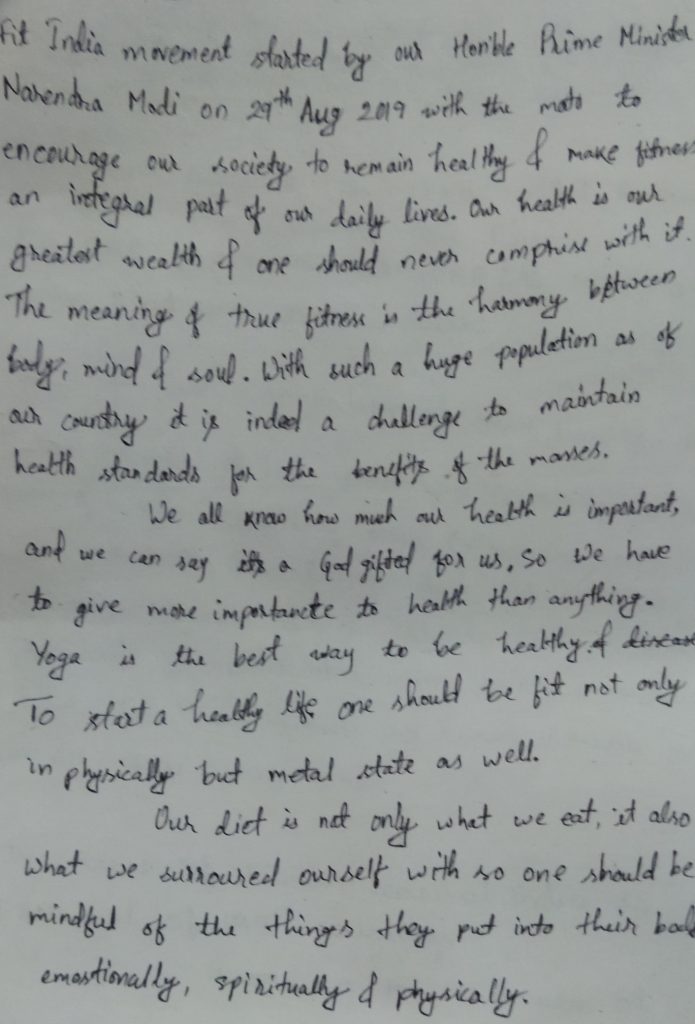 Fit India movement started by our Hon'ble Prime Minister
Narendra Modi on 29th Aug 2019 with the moto to
encourage our society to remain healthy & make fitness
an integral part of our daily lives. Our health is our
greatest wealth & one should never comprise with it.
The meaning of true fitness is the harmony between
body, mind & soul. With such a huge population as of
our country it is indeed a challenge to maintain
health standards for the benefits of the masses.
We all know how much our health is important,
and we can say its a God gifted for us. So we have
to give more importancte to health than anything.
Yoga is the best way to be healthy & disease
To start a healthy life one should be fit not only
in physically but metal state as well.
Our diet is not only what we eat, it also
what we surroured ourself with so one should be
mindful of the things they put into their body
emostionally, spiritually & physically.